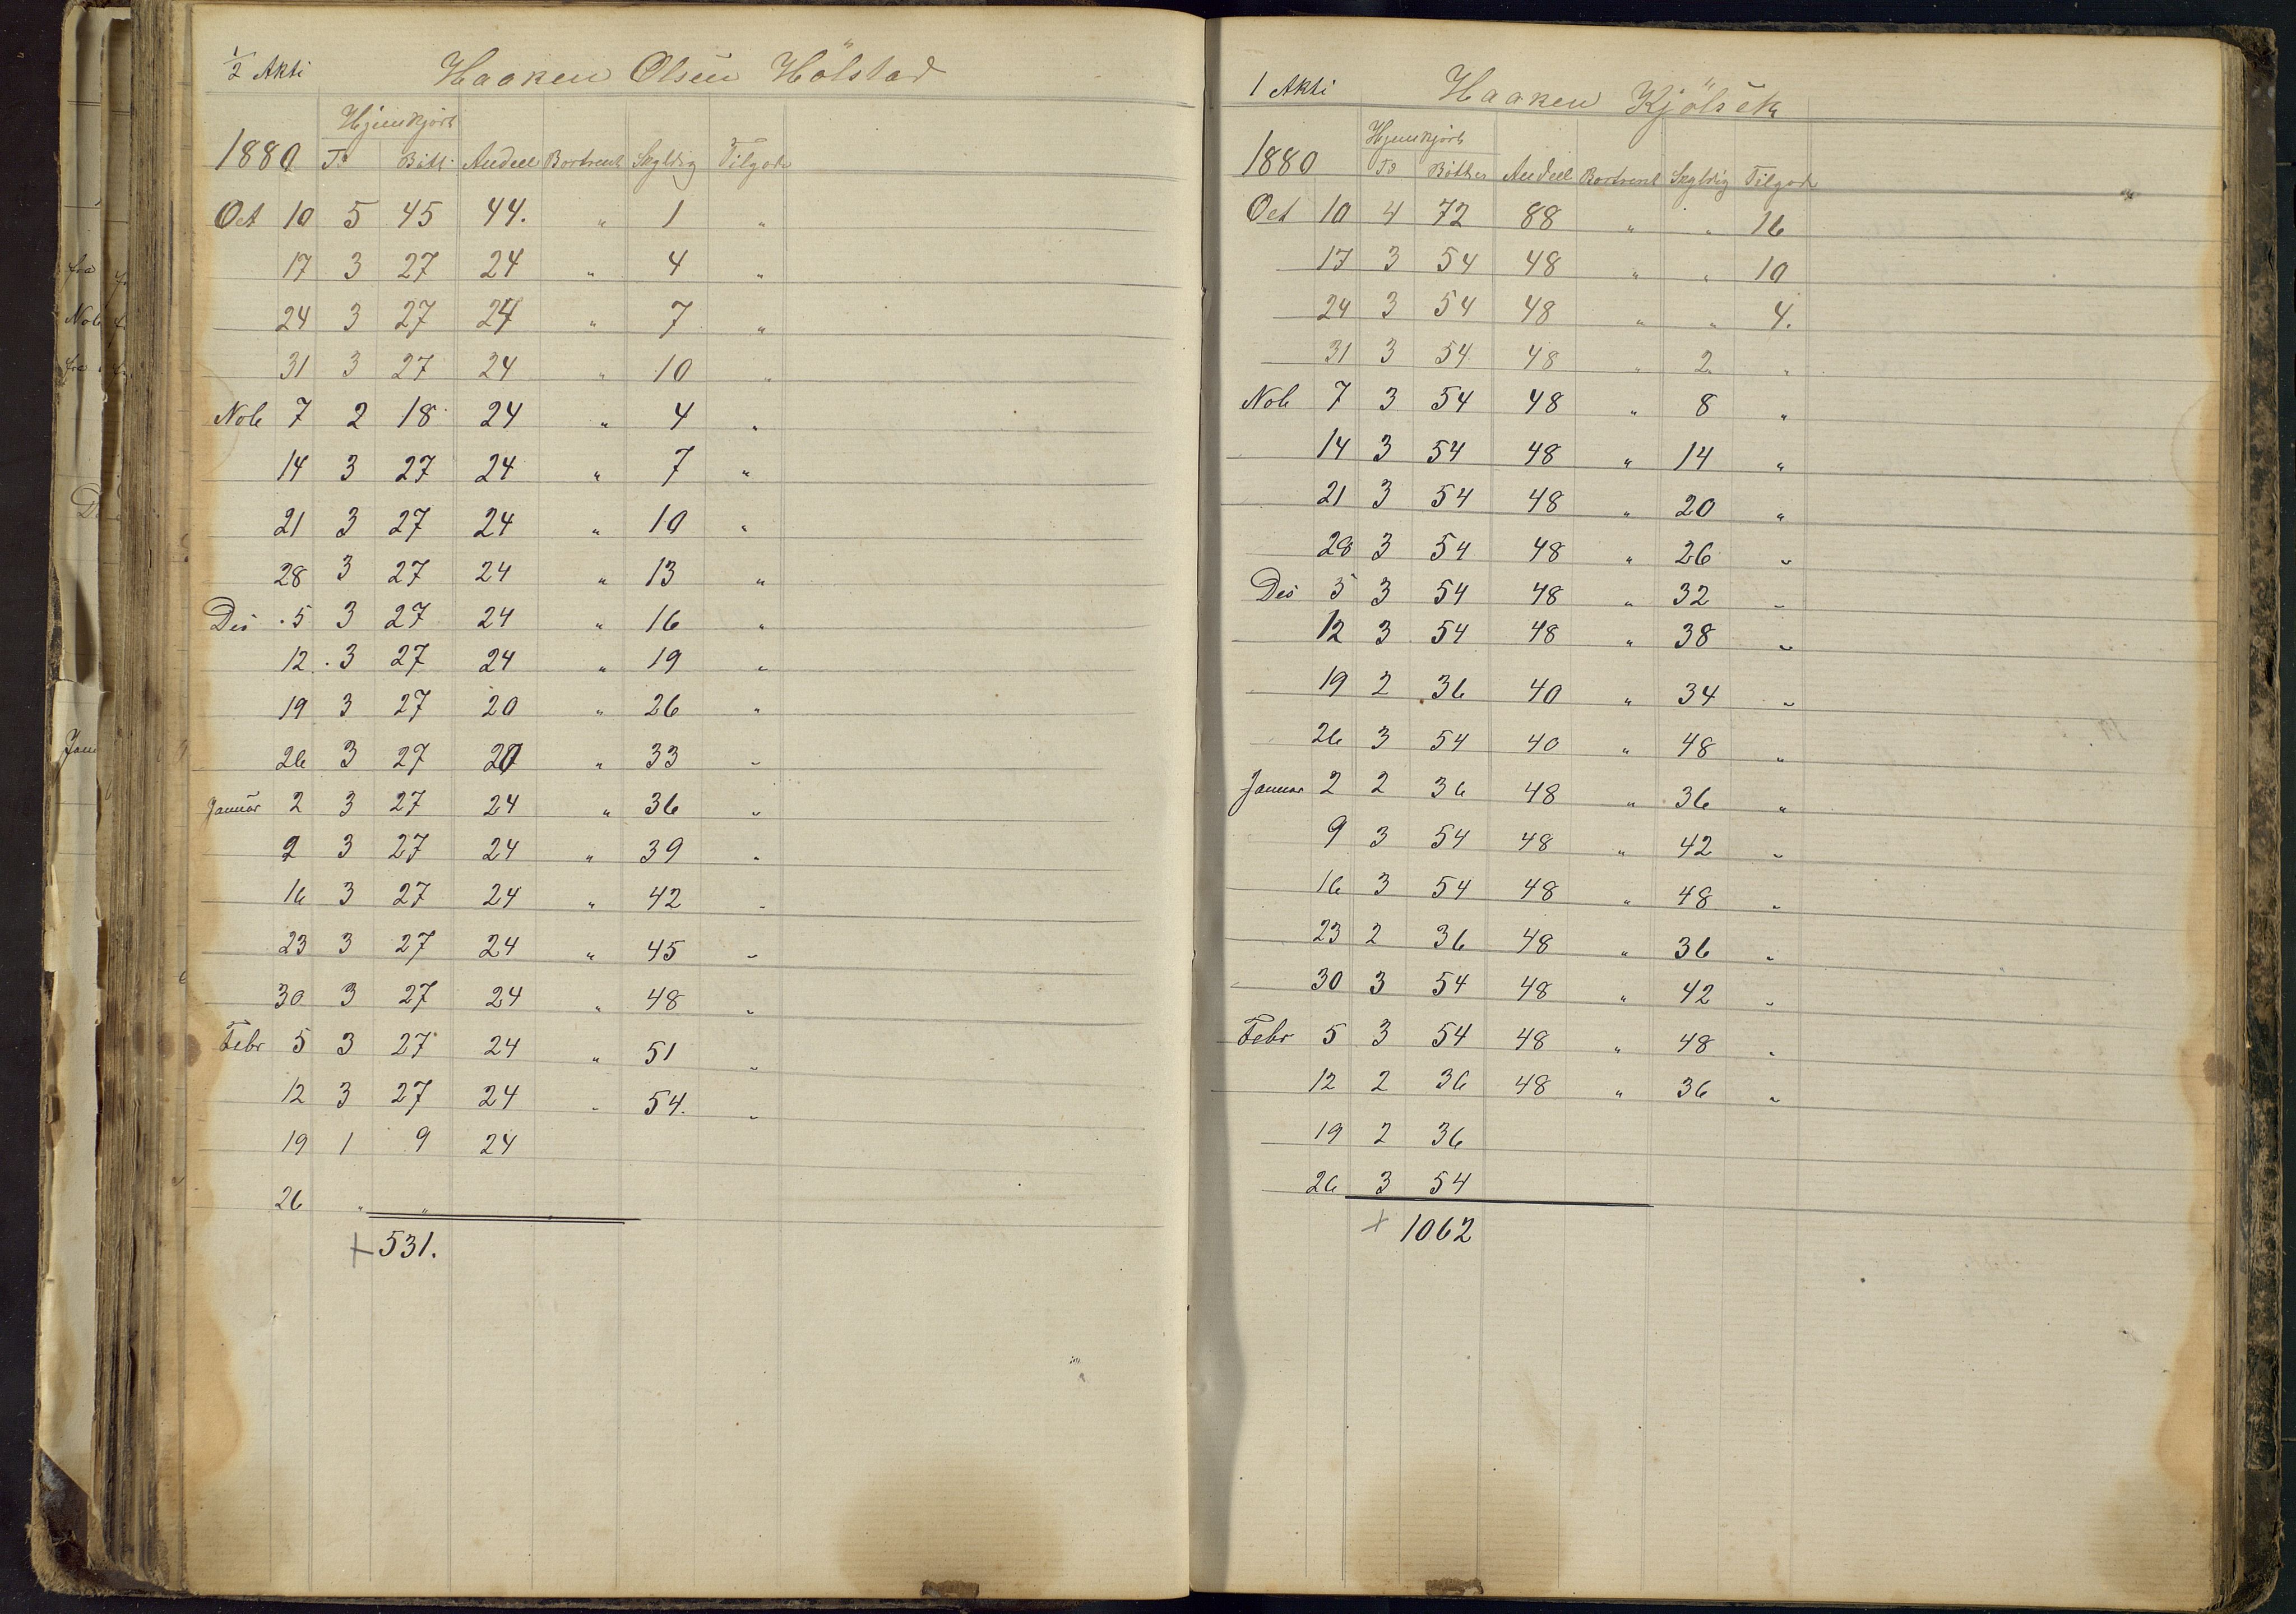 1/2 Akti Haaken Olsen Hölstad
Hjemkjört
1880 Ts Bött. Andeel Bortsent Skyldig Tilgode
Oct 10 5 45 44. " 1 "
17 3 27 24 " 4 "
24 3 27 24 " 7 "
31 3 27 24 " 10 "
Nob 7 2 18 24 " 4 "
14 3 27 24 " 7 "
21 3 27 24 " 10 "
28 3 27 24 " 13 "
Des 5 3 27 24 " 16 "
12 3 27 24 " 19 "
19 3 27 20 " 26 "
26 3 27 20 " 33 "
Januar 2 3 27 24 " 36 "
9 3 27 24 " 39 "
16 3 27 24 " 42 "
23 3 27 24 " 45 "
30 3 27 24 " 48 "
Febr 5 3 27 24 " 51 "
12 3 27 24 " 54. "
19 1 9 24
26 " "
+ 531.
1 Akti Haaken Kjölsek
Hjemkjört
1880 Ts Bötter Andeel Bortsent Skyldig Tilgode
Oct 10 4 72 88 " " 16
17 3 54 48 " " 10
24 3 54 48 " " 4.
31 3 54 48 " 2 "
Nob 7 3 54 48 " 8 "
14 3 54 48 " 14 "
21 3 54 48 " 20 "
28 3 54 48 " 26 "
Des 5 3 54 48 " 32 "
12 3 54 48 " 38 "
19 2 36 40 " 34 "
26 3 54 40 " 48 "
Januar 2 2 36 48 " 36 "
9 3 54 48 " 42 "
16 3 54 48 " 48 "
23 2 36 48 " 36 "
30 3 54 48 " 42 "
Febr 5 3 54 48 " 48 "
12 2 36 48 " 36 "
19 2 36
26 3 54
+ 1062